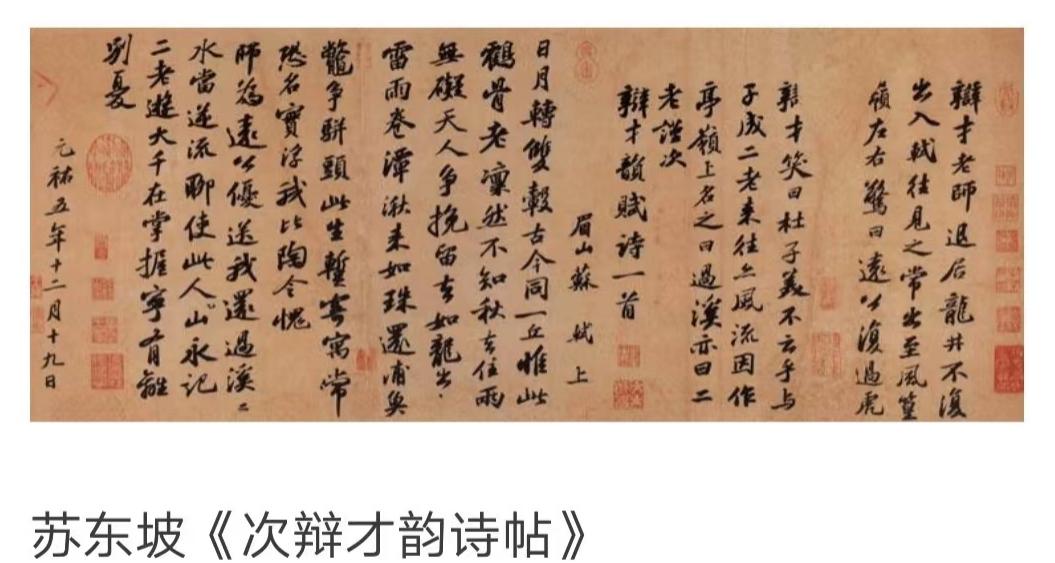 辯才老師退居龍井不復
出入軾往見之常出至風篁
嶺左右驚曰遠公復過虎
溪矣
辯才笑曰杜子美不云乎與
子成二老來往亦風流因作
亭嶺上名之曰過溪亦曰二
老謹次
辯才韻賦詩一首
眉山蘇軾上
日月轉雙轂古今同一丘惟此
鶴骨老凜然不知秋去住兩
無礙天人爭挽留去如龍出
雷雨卷潭湫來如珠還浦魚
鱉爭駢頭此生暫寄寓常
恐名實浮我比陶令愧
師為遠公優送我還過溪溪
水當逆流聊使此人山永記
二老遊大千在掌握寧有離
別憂
元祐五年十二月十九日
苏东坡《次辩才韵诗帖》